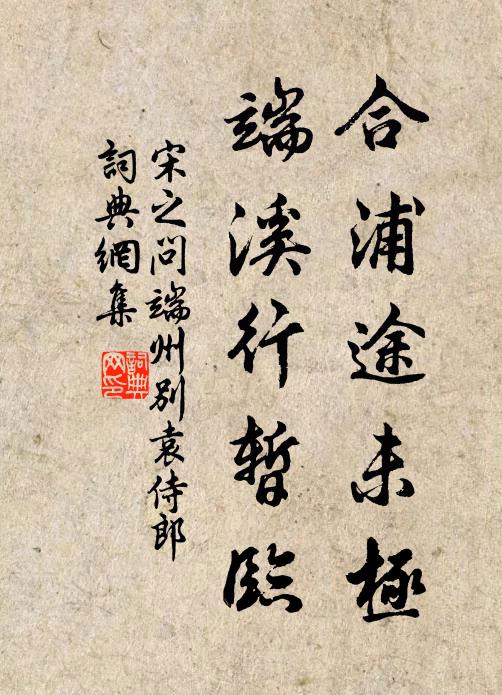 合浦途未極
端溪行暫臨
宋之問端州別袁侍郎
詞典網集
詞典網印